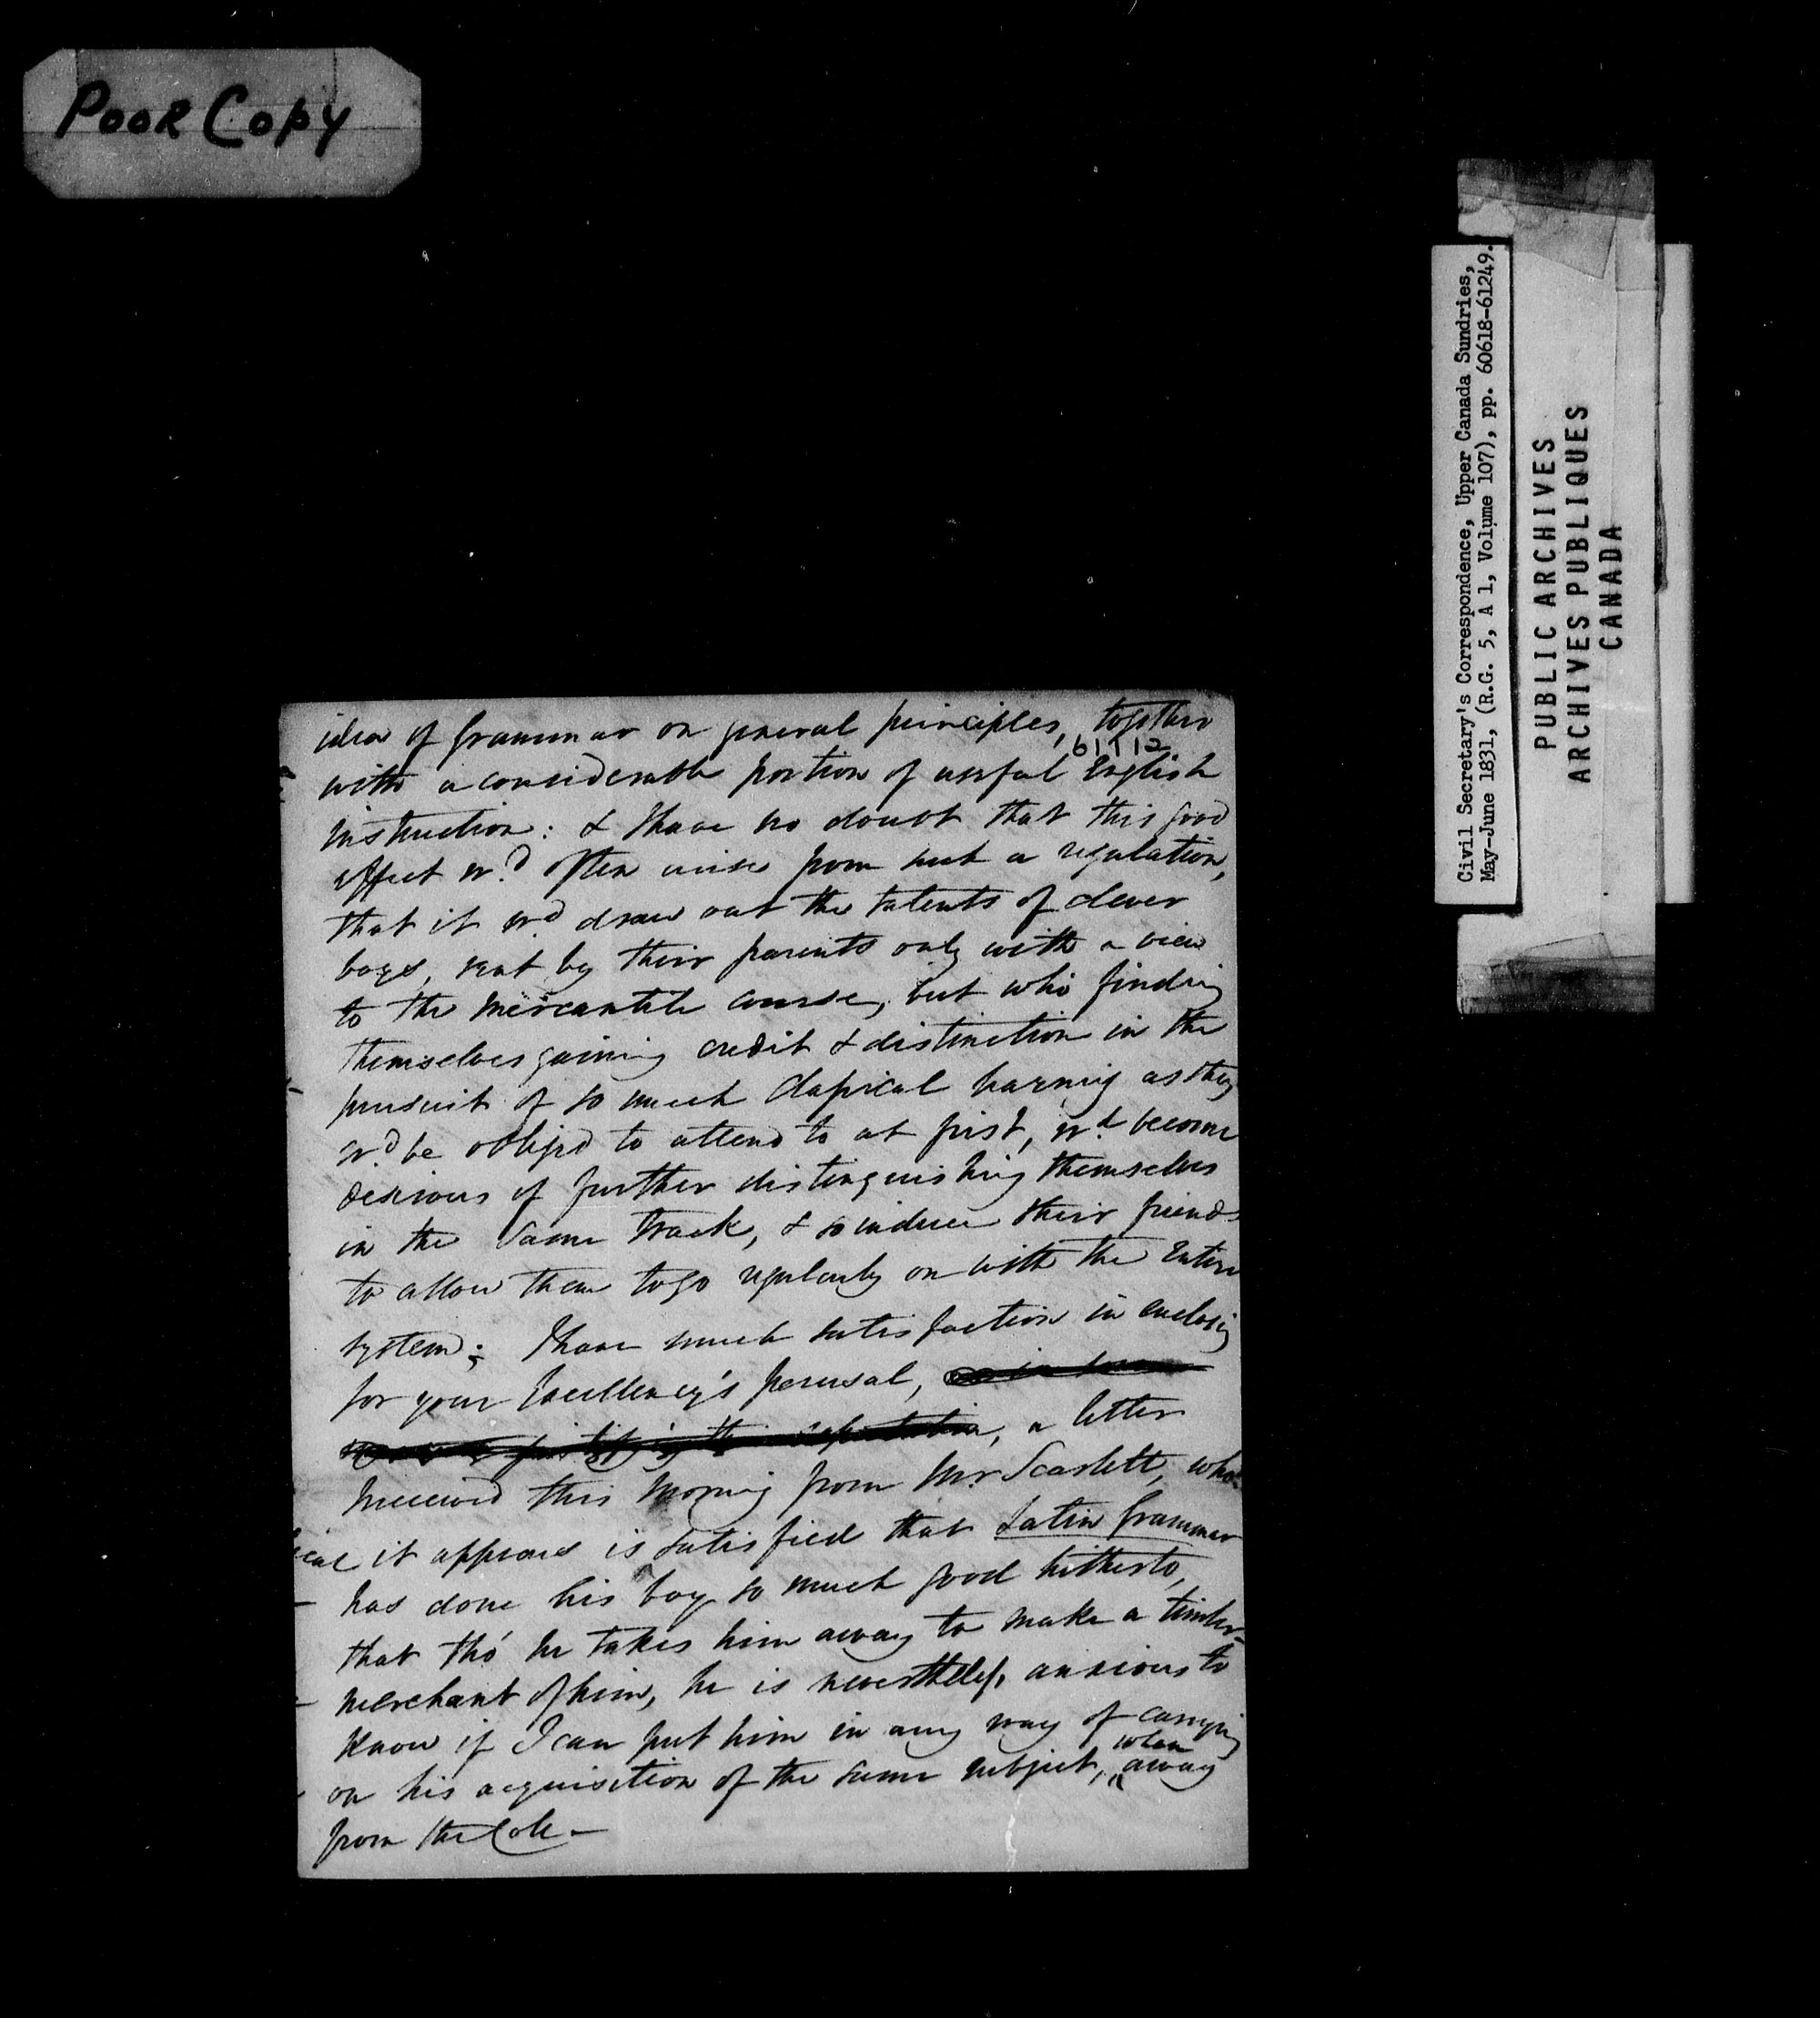 POOR COPY
Civil Secretary's Correspondence, Upper Canada Sundries,
May-June 1831, (R.G. 5, A 1, Volume 107), pp. 60618-61249.
PUBLIC ARCHIVES
ARCHIVES PUBLIQUES
CANADA
idea of Grammar on general principles, together
61112
with a considerable portion of useful English
instruction: & I have no doubt that this good
effect wd. often arise from such a regulation,
that it wd. draw out the talents of clever
boys, sent by their parents only with a view
to the mercantile course, but who finding
themselves gaining credit & distinction in the
pursuit of so much Classical learning as they
wd. be obliged to attend to at first, wd. become
desirous of further distinguishing themselves
in the same track, & so induce their friends
to allow them to go regularly on with the entire
system; I have much satisfaction in enclosing
for your Excellency's perusal,
, a letter
received this morning from Mr. Scarlett, who
it appears is satisfied that Latin Grammar
has done his boy so much good hitherto,
that tho' he takes him away to make a timber-
merchant of him, he is nevertheless anxious to
know if I can put him in any way of carrying
on his acquisition of the same subject, when away
from the Colle-